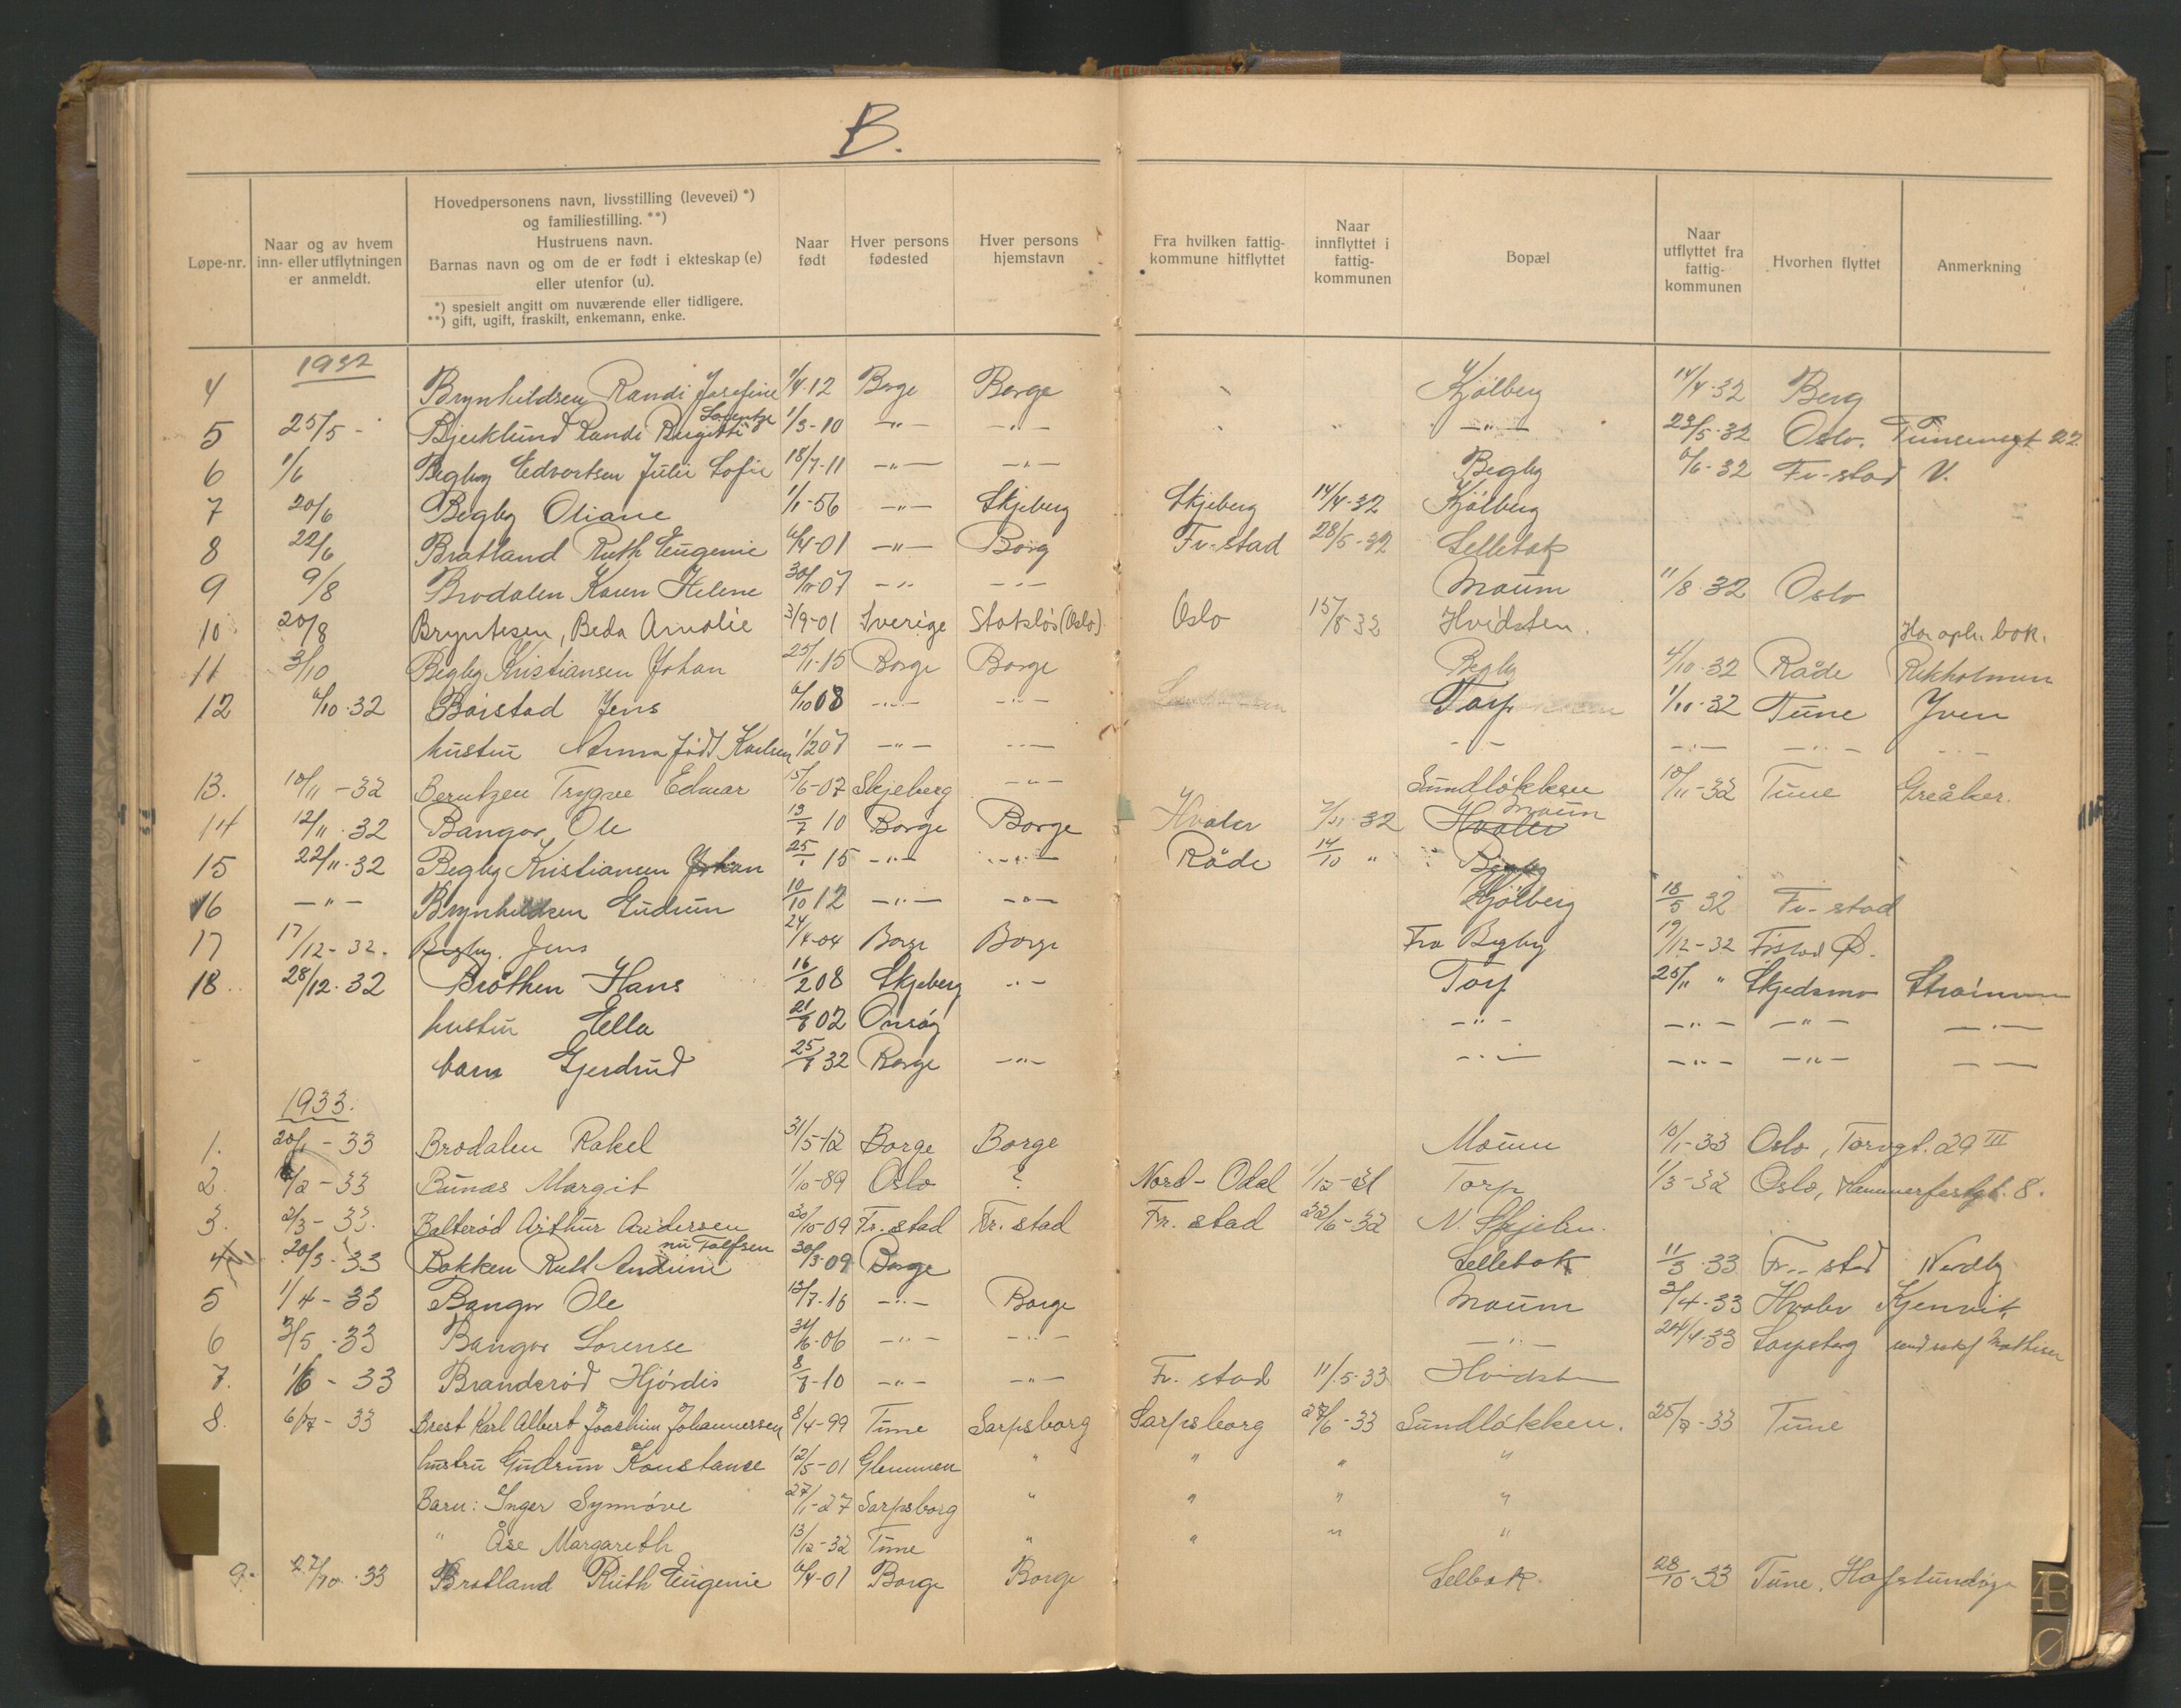 B.
Løpe-nr.
Naar og av hvem
inn- eller utflytningen
er anmeldt.
Hovedpersonens navn, livsstilling (levevei) *)
og familiestilling. **)
Hustruens navn.
Barnas navn og om de er født i ekteskap (e)
eller utenfor (u).
*) spesielt angitt om nuværende eller tidligere.
**) gift, ugift, fraskilt, enkemann, enke.
Naar
født
Hver persons
fødested
Hver persons
hjemstavn
Fra hvilken fattig-
kommune hitflyttet
Naar
innflyttet i
fattig-
kommunen
Bopæl
Naar
utflyttet fra
fattig-
kommunen
Hvorhen flyttet
Anmerkning
1932
4 Brynhildsen Randi Josefine 1/4-12 Borge Borge Kjölberg 14/4-32 Berg
Lorentze
5 25/5 - Bjerklund Randi Birgitte 1/3-10 -"- -"- -"- 23/5-32 Oslo.
6 1/6 Begby Edvortsen Julie Sofie 18/7-11 -"- -"- Begby 6/6-32 Fr-stad V.
7 20/6 Begby Oliane 1/1-56 -"- Skjeberg Skjeberg 14/4-32 Kjölberg
8 22/6 Bratland Ruth Eugenie 6/4-01 -"- Borg Fr-stad 28/5-32 Sellebak
9 9/8 Brodalen Karen Helene -"- -"- Moum 11/8-32 Oslo
10 20/8 Bryntesen, Beda Amalie 3/9-01 Sverige Statsløs (Oslo) Oslo 15/8-32 Hvidsten. bok.
11 3/10 Begby Kristiansen Johan 25/1-15 Borge Borge Begby 4/10-32 Råde Rekholmen
12 6/10-32 Börstad Jens 6/10 08 -"- -"- Torp 1/10-32 Tune Yven
hustru Anna født Karlsen 1/2 07 -"- -"- -"- -"- -"- -"-
13. 10/11-32 Berntzen Trygve Edmar 15/6-07 Skjeberg -"- Sundløkken 10/11-32 Tune Greåker.
Moum
14 12/11-32 Bangor, Ole 13/7 10 Borge Borge Hvaler 7/11-32 Hvaler
15 22/11-32 Begby Kristiansen Johan 25/1 15 -"- -"- Råde 14/10 " Begby
16 -"- Brynhildsen Gudrun 10/10 12 -"- -"- Kjölberg 18/5 32 Fr-stad
17 17/12-32. Begby. Jens 24/4-04 Borge Borge Fra Begby 19/12-32 Fr.stad Ø.
18. 28/12-32 Bråthen Hans 16/2 08 Skjeberg -"- Torp 25/11 " Skjedsmo Strömmen
hustru Ella 21/8 02 Onsöy -"- -"- -"- -"-
barn Gjerdrud 25/8 32 Borge -"- -"- -"- -"- -"-
1933.
1. 20/1-33 Brodalen Rakel 31/5-12 Borge Borge Moum 10/1-33 Oslo, Torvgt. 29 III
2. /2-33 Bunæs Margit 1/10-89 Oslo ? Nord-Odal 1/12-31 Torp 1/3-32 Oslo, Hammerfestgt. 8.
3. 2/3-33. Balterød Arthur Andersen 30/10-09 Fr.stad Fr.stad Fr. stad 22/6-32 N. Skjelin.
nu Tolfsen
4 20/3-33 Bakken Ruth Andrine 30/3-09 Borge Sellebak 11/3-33 Fr.-stad Nordby
5 1/4-33 Bangor Ole 13/7-10 -"- Borge Moum 3/4-33 Hvaler Kjenvik
6 3/5-33 Bangor Lorense -"- -"- -"- 24/4-33 Sarpsborg
7. 1/6-33 Branderød Hjördis 8/8-10 -"- -"- Fr. stad 11/5-33 Hvidsten
8. 6/7-33 Brest Karl Albert Joachim Johannessen 8/4-99 Tune Sarpsborg Sarpsborg 27/6-33 Sundløkken. 25/9-33 Tune
hustru Gudrun Konstanse 12/5-01 Glemmen " " " "
Barn: Inger Synnöve 27/1-27 Sarpsborg " " " "
" Åse Margareth 13/12-32 Tune " " " "
9. 27/10-33 Bratland Ruth Eugenie 6/4-01 Borge Borge Selbak. 28/10-33 Tune, Hafslundsøy